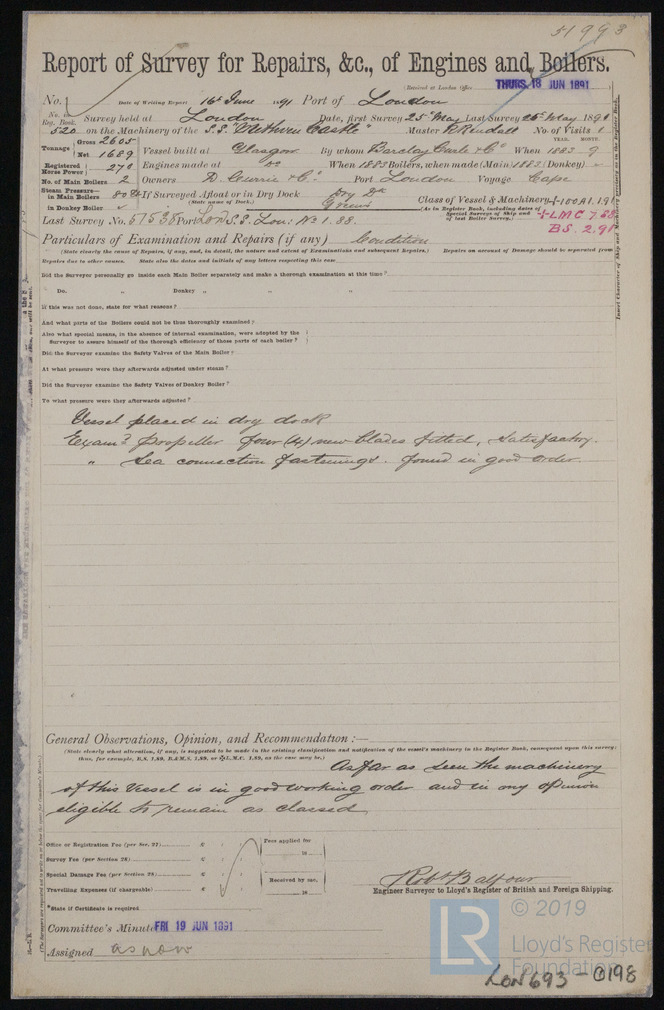 51993
Report of Survey for Repairs, &c., of Engines and Boilers.
(Received at London Office THURS. 18 JUN 1891
No. Date of Writing Report 16th June 1891 Port of London
No. in Reg. Book. Survey held at London Date, first Survey 25th May Last Survey 26th May 1891
520 on the Machinery of the S.S. "Methven Castle" Master No. of Visits 1
Tonnage Gross 2605 Net 1689 Vessel built at Glasgow By whom Barclay Curle & Co When 1883 9 YEAR. MONTH.
Registered Horse Power 270 Engines made at do When 1883 Boilers, when made (Main) 1883 (Donkey) -
No. of Main Boilers 2 Owners D. Currie & Co. Port London Voyage Cape
Steam Pressure— in Main Boilers 80 lb If Surveyed Afloat or in Dry Dock Dry Dk
in Donkey Boiler (State name of Dock.) Greens
Class of Vessel & Machinery 100A1. (As in Register Book, including dates of Special Surveys of Ship and of last Boiler Survey.) LMC 7.88
BS. 2.91
Last Survey No. 51535 Port Lon S.S. Lon: No 1. 88.
Particulars of Examination and Repairs (if any) Condition
(State clearly the cause of Repairs, if any, and, in detail, the nature and extent of Examinations and subsequent Repairs.) Repairs on account of Damage should be separated from
Repairs due to other causes. State also the dates and initials of any letters respecting this case.
Did the Surveyor personally go inside each Main Boiler separately and make a thorough examination at this time?
Do. „ Donkey „ „ „
If this was not done, state for what reasons?
And what parts of the Boilers could not be thus thoroughly examined?
Also what special means, in the absence of internal examination, were adopted by the
Surveyor to assure himself of the thorough efficiency of those parts of each boiler?
Did the Surveyor examine the Safety Valves of the Main Boiler?
At what pressure were they afterwards adjusted under steam?
Did the Surveyor examine the Safety Valves of Donkey Boiler?
To what pressure were they afterwards adjusted?
Vessel placed in dry dock
Examd propeller four (4) new blades fitted, satisfactory.
" Sea connection fastenings. found in good order.
General Observations, Opinion, and Recommendation:—
(State clearly what alteration, if any, is suggested to be made in the existing classification and notification of the vessel's machinery in the Register Book, consequent upon this survey:
thus, for example, B.S. 1.89, B.&M.S. 1.89, or L.M.C. 1.89, as the case may be.)
As far as seen the machinery
of this Vessel is in good working order and in my opinion
eligible to remain as classed
Office or Registration Fee (per Sec. 27) £ : :
Survey Fee (per Section 28) £ : :
Special Damage Fee (per Section 28) £ : :
Travelling Expenses (if chargeable) £ : :
Fees applied for
18
Received by me,
18
*State if Certificate is required
Robt Balfour
Engineer Surveyor to Lloyd's Register of British and Foreign Shipping.
Committee's Minute FRI 19 JUN 1891
Assigned as now
LR © 2019
Lloyd's Register
Foundation
LON693-0198